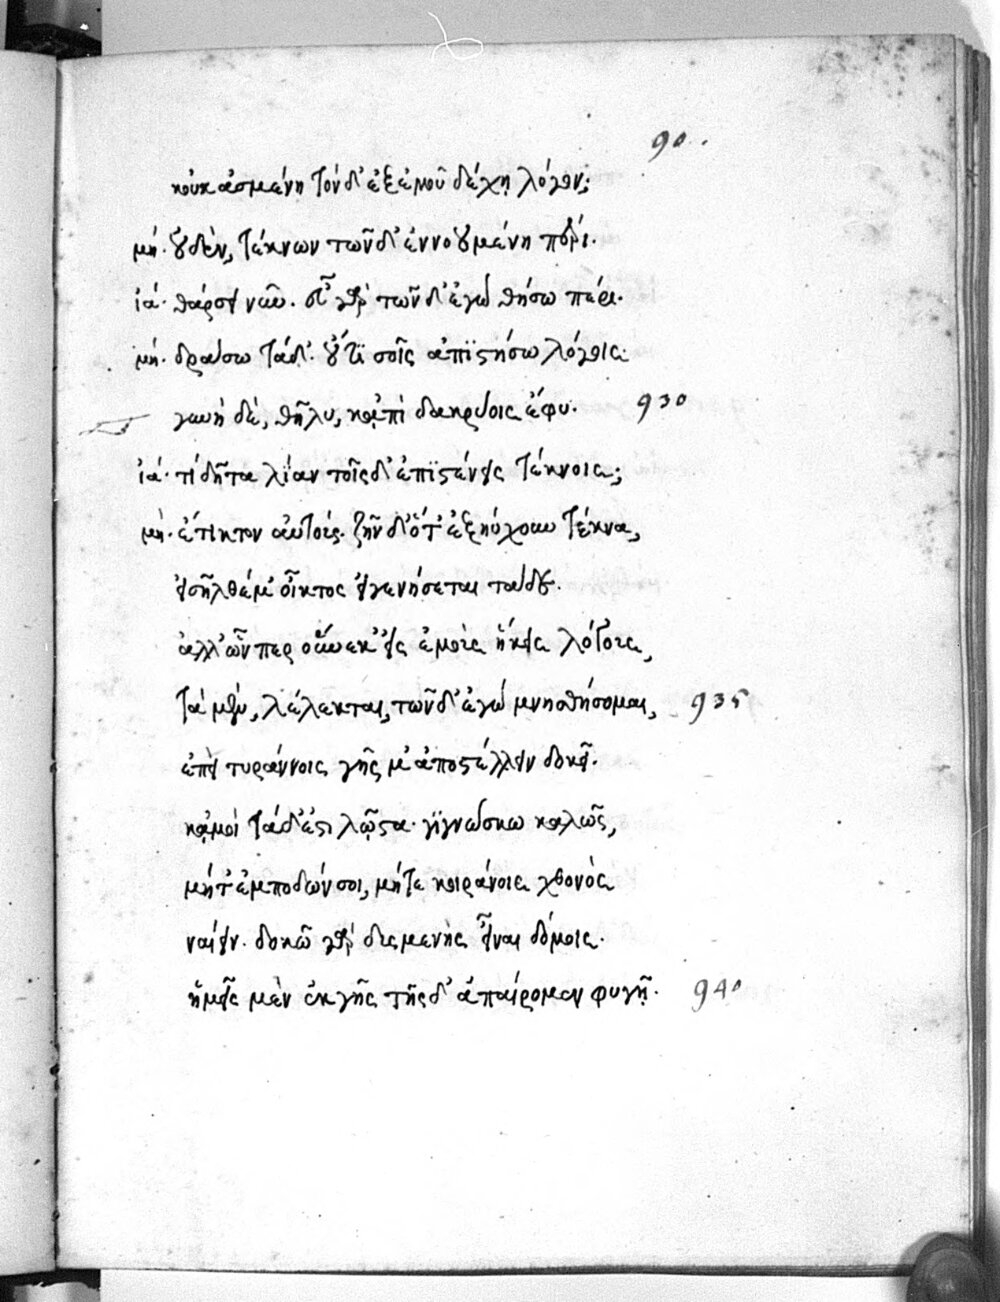 90.
κοὐκ ἀσμένη τόνδ' ἐξ ἐμοῦ δέχη λόγον;
μή· οὐδὲν, τέκνων τῶνδ' ἐννοουμένη πέρι.
ἰά· θάρσει νῦν. εὖ γὰρ τῶνδ' ἐγὼ θήσω πέρι.
μή· δράσω τάδ'. οὔτι σοῖς ἀπϊστήσω λόγοις
γυνὴ δὲ, θῆλυ, κἀπὶ δακρύοις ἔφυ. 930
ἰά· τί δῆτα λίαν τοῖσδ' ἐπϊστένεις τέκνοις;
μή· ἔτικτον αὐτούς. ζῆν δ' ὅτ' ἐξηύχου τέκνα,
εἰσῆλθέ μ' οἶκτος εἰ γενήσεται τάδε.
ἀλλ' ὧνπερ οὕνεκ' εἰς ἐμοὺς ἥκεις λόγους,
τὰ μὲν, λέλεκται, τῶνδ' ἐγὼ μνησθήσομαι, 935
ἐπεὶ τυράννοις γῆς μ' ἀποστέλλειν δοκεῖ.
κἀμοὶ τάδ' ἐστι λῷστα· γϊγνώσκω καλῶς,
μήτ' ἐμποδών σοι, μήτε κοιράνοις χθονὸς
ναίειν. δοκῶ γὰρ δυσμενὴς εἶναι δόμοις.
ἡμεῖς μὲν ἐκ γῆς τῆσδ' ἀπαίρομεν φυγῇ. 940